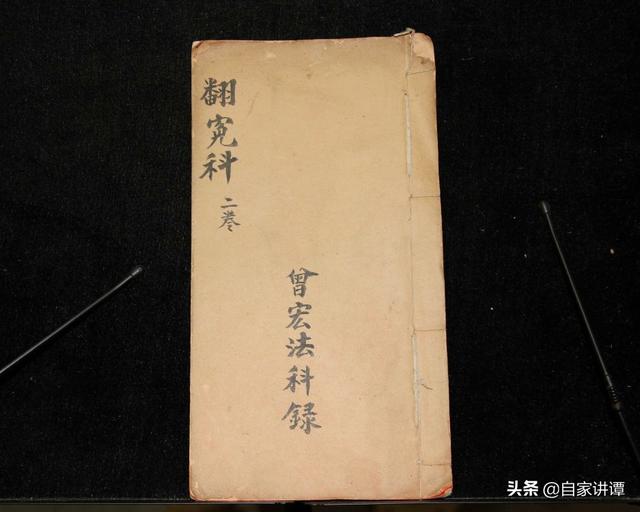 翻寃科 二卷
曾宏法科録
头条 @自家讲谭